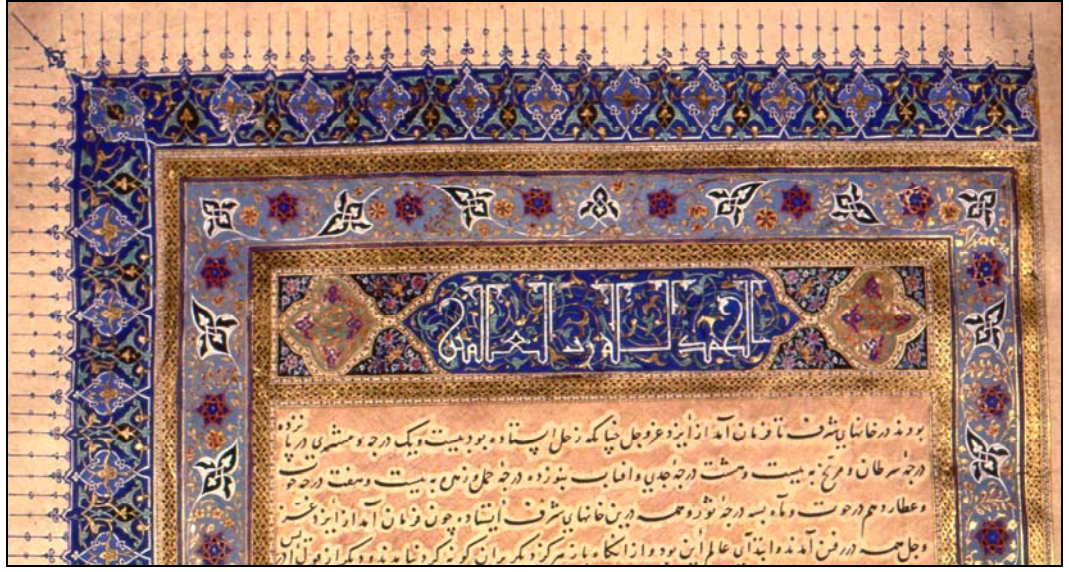 الحمد لله رب العالمین
بودند در خانهای شرف تا فرمان آمد از ایزد عزوجل چنانکه زحل ایستاده بود بیست و یک درجه و مشتری در پانزده
درجهٔ سرطان و مریخ به بیست و هشت درجهٔ جدی و افتاب بنوزده درجهٔ حمل و زهره به بیست و هفت درجه حوت
و عطارد هم در حوت و ماه بسه درجهٔ ثور و همه درین خانهای شرف ایستاده چون فرمان آمد از ایزد عز
وجل همه در رفتن آمدند و ابتدای عالم این بود و از انگاه باز هرگز دیگر بران گونه گرد نیامدند و دیگر از قول ادریس